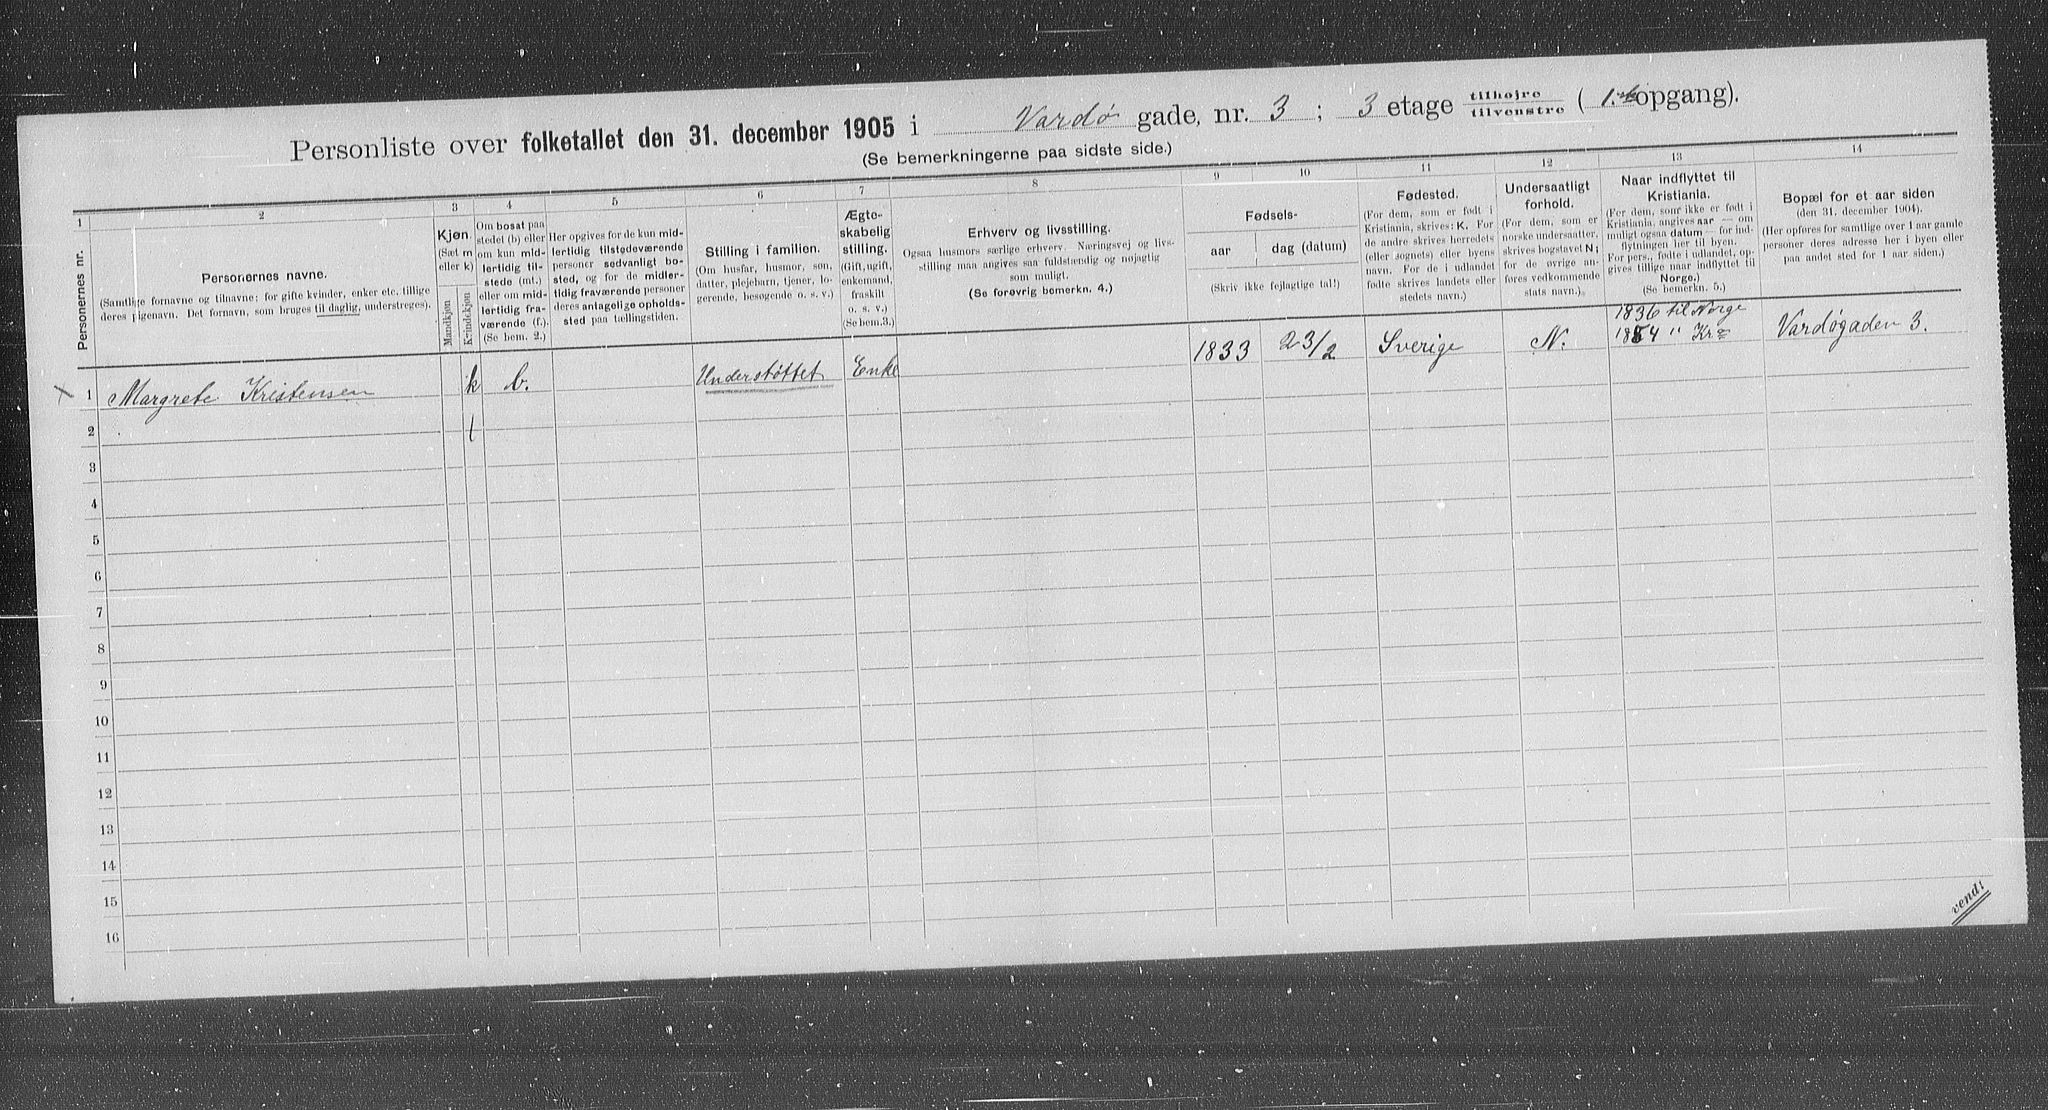 Personliste over folketallet den 31. december 1905 i Vardø gade, nr. 3 ; 3 etage tilhøjre tilvenstre ( 1. opgang).
(Se bemerkningerne paa sidste side.)
1 2 3 4 5 6 7 8 9 10 11 12 13 14
Personernes nr.
Personernes navne.
(Samtlige fornavne og tilnavne; for gifte kvinder, enker etc. tillige
deres pigenavn. Det fornavn, som bruges til daglig, understreges).
Kjøn.
(Sæt m
eller k)
Mandkjøn
Kvindekjøn
Om bosat paa
stedet (b) eller
om kun mid-
lertidig til-
stede (mt.)
eller om mid-
lertidig fra-
værende (f.).
(Se bem. 2.)
Her opgives for de kun mid-
lertidig tilstedeværende
personer sedvanligt bo-
sted, og for de midler-
tidig fraværende personer
deres antagelige opholds-
sted paa tællingstiden.
Stilling i familien.
(Om husfar, husmor, søn,
datter, plejebarn, tjener, lo-
gerende, besøgende o. s. v.)
Ægte-
skabelig
stilling.
(Gift, ugift,
enkemand,
fraskilt
o. s. v.)
(Se bem. 3.)
Erhverv og livsstilling.
Ogsaa husmors særlige erhverv. Næringsvej og livs-
stilling maa angives saa fuldstændig og nøjagtig
som muligt.
(Se forøvrig bemerkn. 4.)
Fødsels-
aar
dag (datum)
(Skriv ikke fejlagtige tal!)
Fødested.
(For dem, som er født i
Kristiania, skrives: K. For
de andre skrives herredets
(eller sognets) eller byens
navn. For de i udlandet
fødte skrives landets eller
stedets navn.)
Undersaatligt
forhold.
(For dem, som er
norske undersaatter,
skrives bogstavet N;
for de øvrige an-
føres vedkommende
stats navn.)
Naar indflyttet til
Kristiania.
(For dem, som ikke er født i
Kristiania, angives aar — om
muligt ogsaa datum — for ind-
flytningen her til byen.
For pers., fødte i udlandet, op-
gives tillige naar indflyttet til
Norge.)
(Se bemerkn. 5.)
Bopæl for et aar siden
(den 31. december 1904).
(Her opføres for samtlige over 1 aar gamle
personer deres adresse her i byen eller
paa andet sted for 1 aar siden.)
1836 til Norge
1 Margrete Kristensen k b. Understøttet Enke 1833 23/2 Sverige N. 1854 " Kra Vardøgaden 3.
2
3
4
5
6
7
8
9
10
11
12
13
14
15
16
vend!